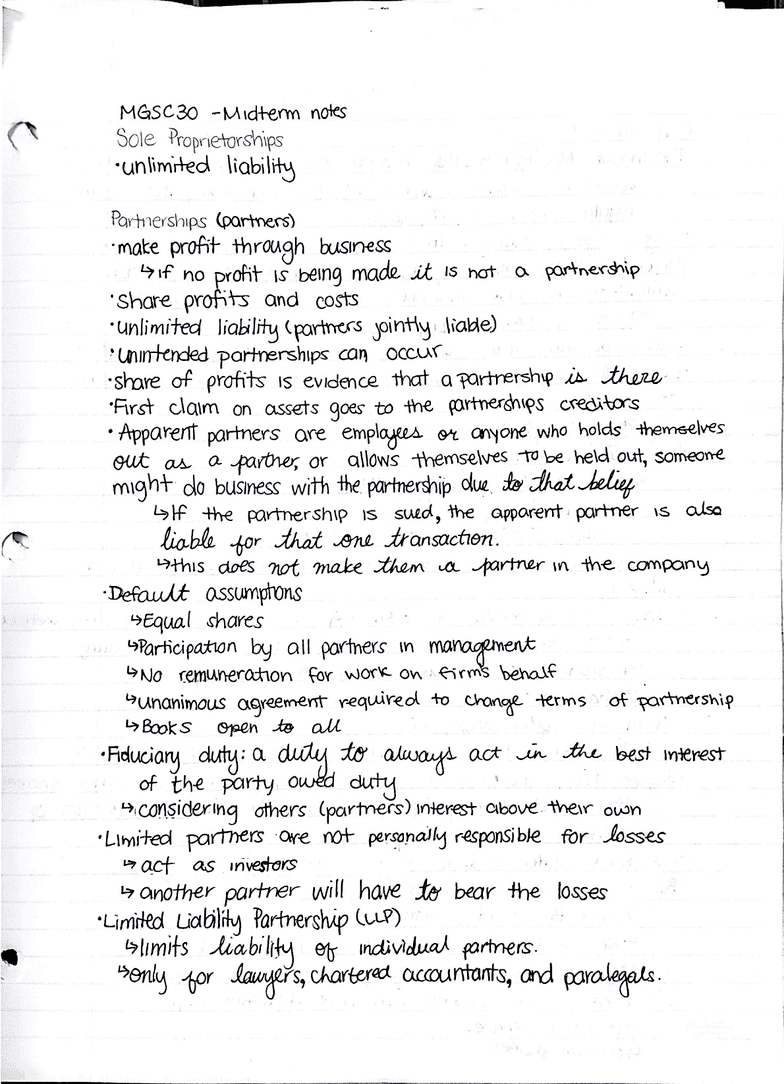 MGSC30 - Midterm notes
Sole Proprietorships
·unlimited liability
Partnerships (partners)
·make profit through business
↳if no profit is being made it is not a partnership
·Share profits and costs
·Unlimited liability (partners jointly liable)
·Unintended partnerships can occur
·share of profits is evidence that a partnership is there
·First claim on assets goes to the partnerships creditors
·Apparent partners are employees or anyone who holds themselves
out as a partner, or allows themselves to be held out, someone
might do business with the partnership due to that belief
↳If the partnership is sued, the apparent partner is also
liable for that one transaction.
↳this does not make them a partner in the company
·Default assumptions
↳Equal shares
↳Participation by all partners in management
↳No remuneration for work on firm's behalf
↳unanimous agreement required to change terms of partnership
↳Books open to all
·Fiduciary duty: a duty to always act in the best interest
of the party owed duty
↳considering others (partners) interest above their own
·Limited partners are not personally responsible for losses
↳act as investors
↳another partner will have to bear the losses
·Limited Liability Partnership (LLP)
↳limits liability of individual partners.
↳only for lawyers, chartered accountants, and paralegals.